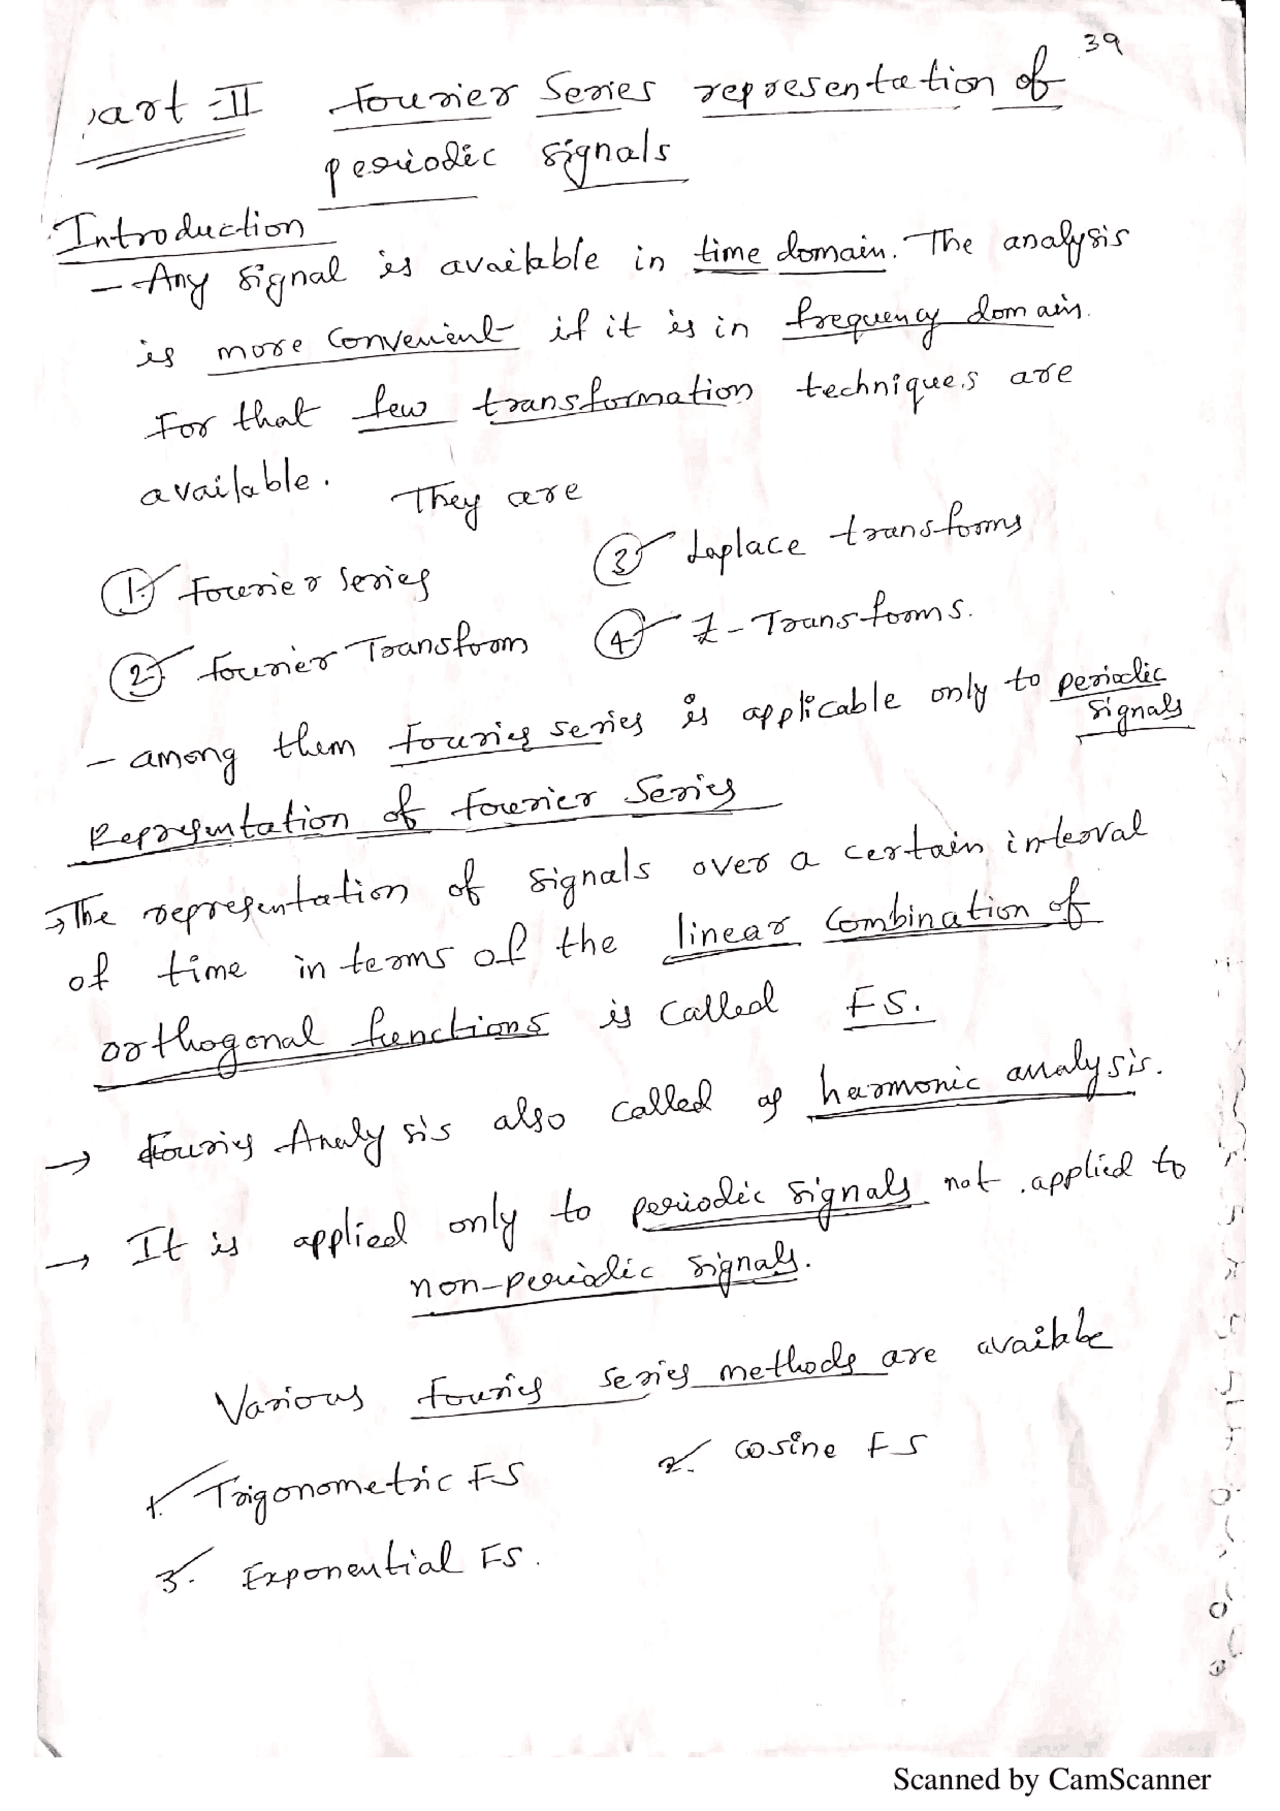 39
Part-II Fourier Series representation of
periodic signals
Introduction
- Any signal is available in time domain. The analysis
is more convenient if it is in frequency domain.
For that few transformation techniques are
available. They are
1. Fourier series 3 Laplace transforms
2. Fourier Transform 4 Z-Transforms.
- among them Fourier series is applicable only to periodic
signals
Representation of Fourier Series
→ The representation of signals over a certain interval
of time in terms of the linear combination of
orthogonal functions is called FS.
→ Fourier Analysis also called as harmonic analysis.
→ It is applied only to periodic signals not applied to
non-periodic signals.
Various Fourier series methods are available
1. Trigonometric FS 2. cosine FS
3. Exponential FS.
Scanned by CamScanner